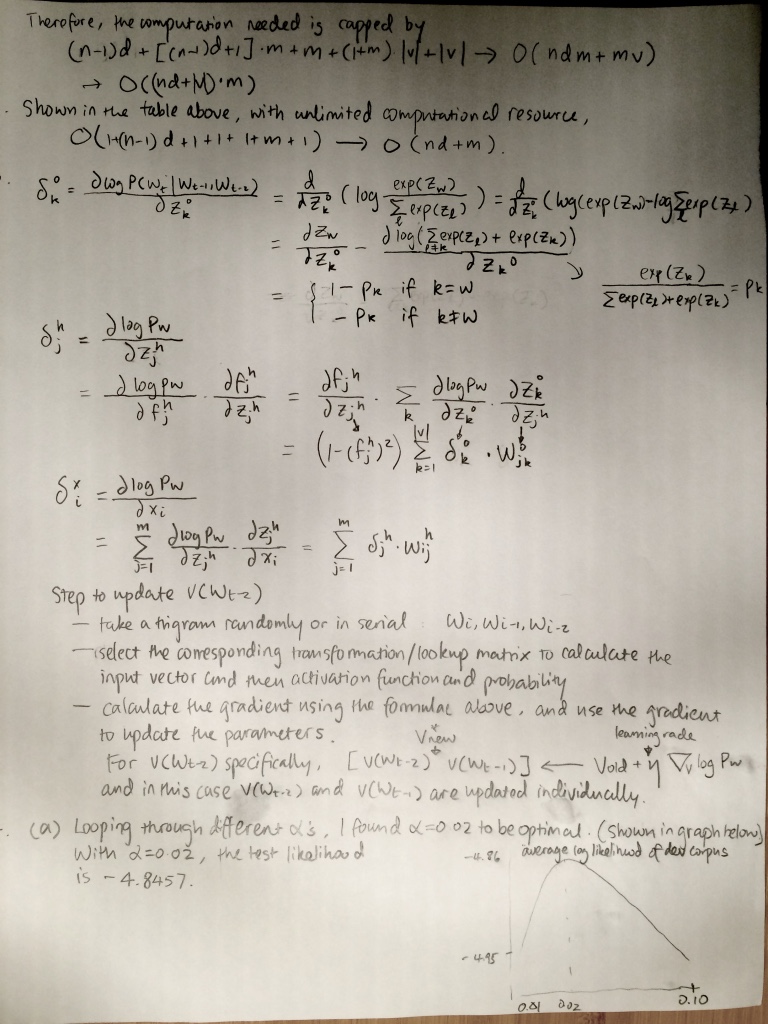 Therefore, the computation needed is capped by
(n-1)d + [(n-1)d+1]·m + m + (1+m)|v|+|v| → O(ndm + mv)
→ O((nd+M)·m)
Shown in the table above, with unlimited computational resource,
O(1+(n-1)d+1+1+1+m+1) → O(nd+m).
δ_k^o = ∂log P(W_t|W_t-1,W_t-2) / ∂Z_k^o = d/dZ_k^o (log exp(Z_w) / Σ_l exp(Z_l)) = d/dZ_k^o (log(exp(Z_w)-log Σ_l exp(Z_l))
= dZ_w/dZ_k^o - ∂log(Σ_l≠k exp(Z_l) + exp(Z_k)) / ∂Z_k^o ↘ exp(Z_k) / Σexp(Z_l)+exp(Z_k) = Pk
= { 1 - Pk if k=w
- Pk if k≠w
δ_j^h = ∂log Pw / ∂Z_j^h
= ∂log Pw / ∂f_j^h · ∂f_j^h / ∂Z_j^h = ∂f_j^h / ∂Z_j^h · Σ_k ∂log Pw / ∂Z_k^o · ∂Z_k^o / ∂Z_j^h
= (1-(f_j^h)²) Σ_k=1^|v| δ_k^o · W_jk^o
δ_i^x = ∂log Pw / ∂x_i
= Σ_j=1^m ∂log Pw / ∂Z_j^h · ∂Z_j^h / ∂x_i = Σ_j=1^m δ_j^h · W_ij^h
Step to update V(Wt-2)
— take a trigram randomly or in serial : Wi, Wi-1, Wi-2
— select the corresponding transformation/lookup matrix to calculate the
input vector and then activation function and probability
— calculate the gradient using the formulae above, and use the gradient
to update the parameters. Vnew learning rade
For V(Wt-2) specifically, [V(Wt-2) V(Wt-1)] ← Vold + η ∇v log Pw
and in this case V(Wt-2) and V(Wt-1) are updated individually.
(a) Looping through different α's, I found α=0.02 to be optimal. (shown in graph below)
With α=0.02, the test likelihood
is -4.8457.
average log likelihood of dev corpus
-4.86
-4.95
0.01 0.02 0.10